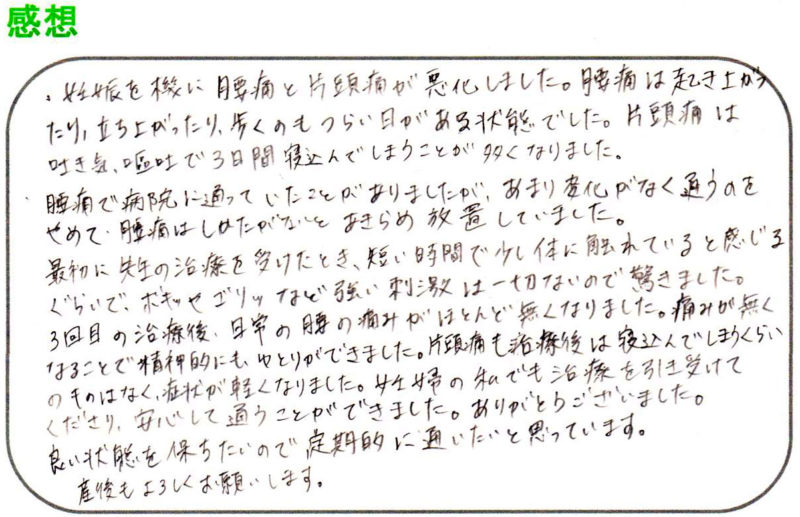 感想
・妊娠を機に腰痛と片頭痛が悪化しました。腰痛は起き上がっ
たり、立ち上がったり、歩くのもつらい日がある状態でした。片頭痛は
吐き気、嘔吐で3日間寝込んでしまうことが多くなりました。
腰痛で病院に通っていたことがありましたが、あまり変化がなく通うのを
やめて、腰痛はしかたがないとあきらめ放置していました。
最初に先生の治療を受けたとき、短い時間で少し体に触れていると感じる
ぐらいで、ボキッやゴリッなど強い刺激は一切ないので驚きました。
3回目の治療後、日常の腰の痛みがほとんど無くなりました。痛みが無く
なることで精神的にもゆとりができました。片頭痛も治療後は寝込んでしまうくらい
のものはなく、症状が軽くなりました。妊婦の私でも治療を引き受けて
くださり、安心して通うことができました。ありがとうございました。
良い状態を保ちたいので定期的に通いたいと思っています。
産後もよろしくお願いします。